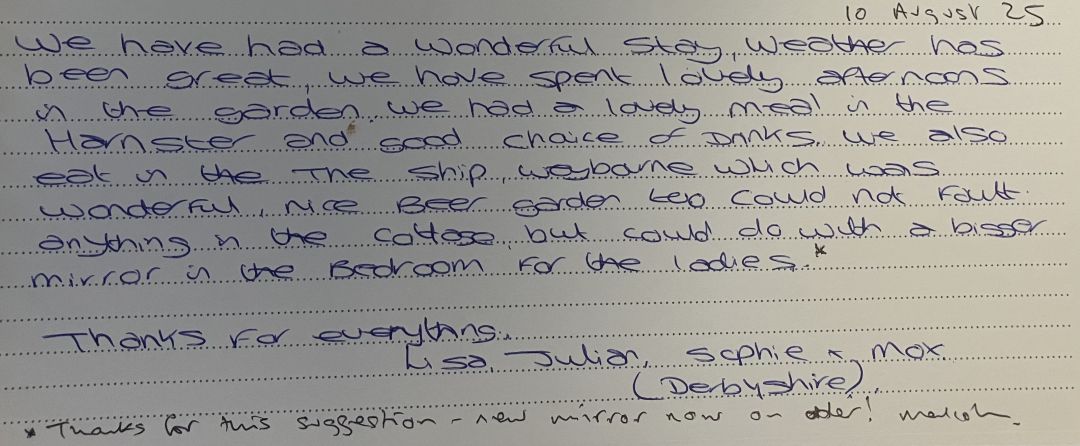 10 August 25
We have had a wonderful stay, weather has
been great, we have spent lovely afternoons
in the garden, we had a lovely meal in the
Hamster and good choice of Drinks, we also
eat in the The Ship, weybarne which was
wonderful, nice Beer garden too could not fault
anything in the cottage, but could do with a bigger
mirror in the Bedroom for the ladies.*
Thanks for everything.
Lisa, Julian, Sophie & Max
(Derbyshire).
* Thanks for this suggestion - new mirror now on order! Malcolm